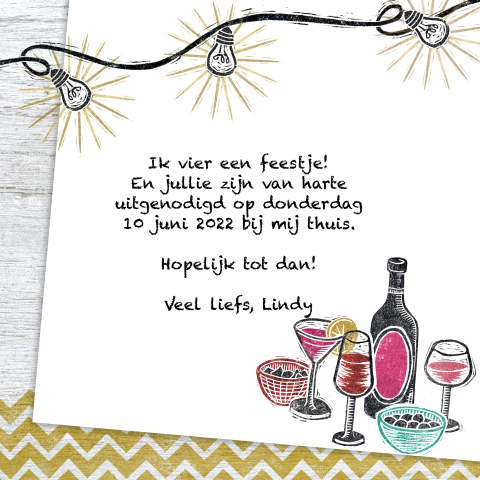 Ik vier een feestje!
En jullie zijn van harte
uitgenodigd op donderdag
10 juni 2022 bij mij thuis.
Hopelijk tot dan!
Veel liefs, Lindy